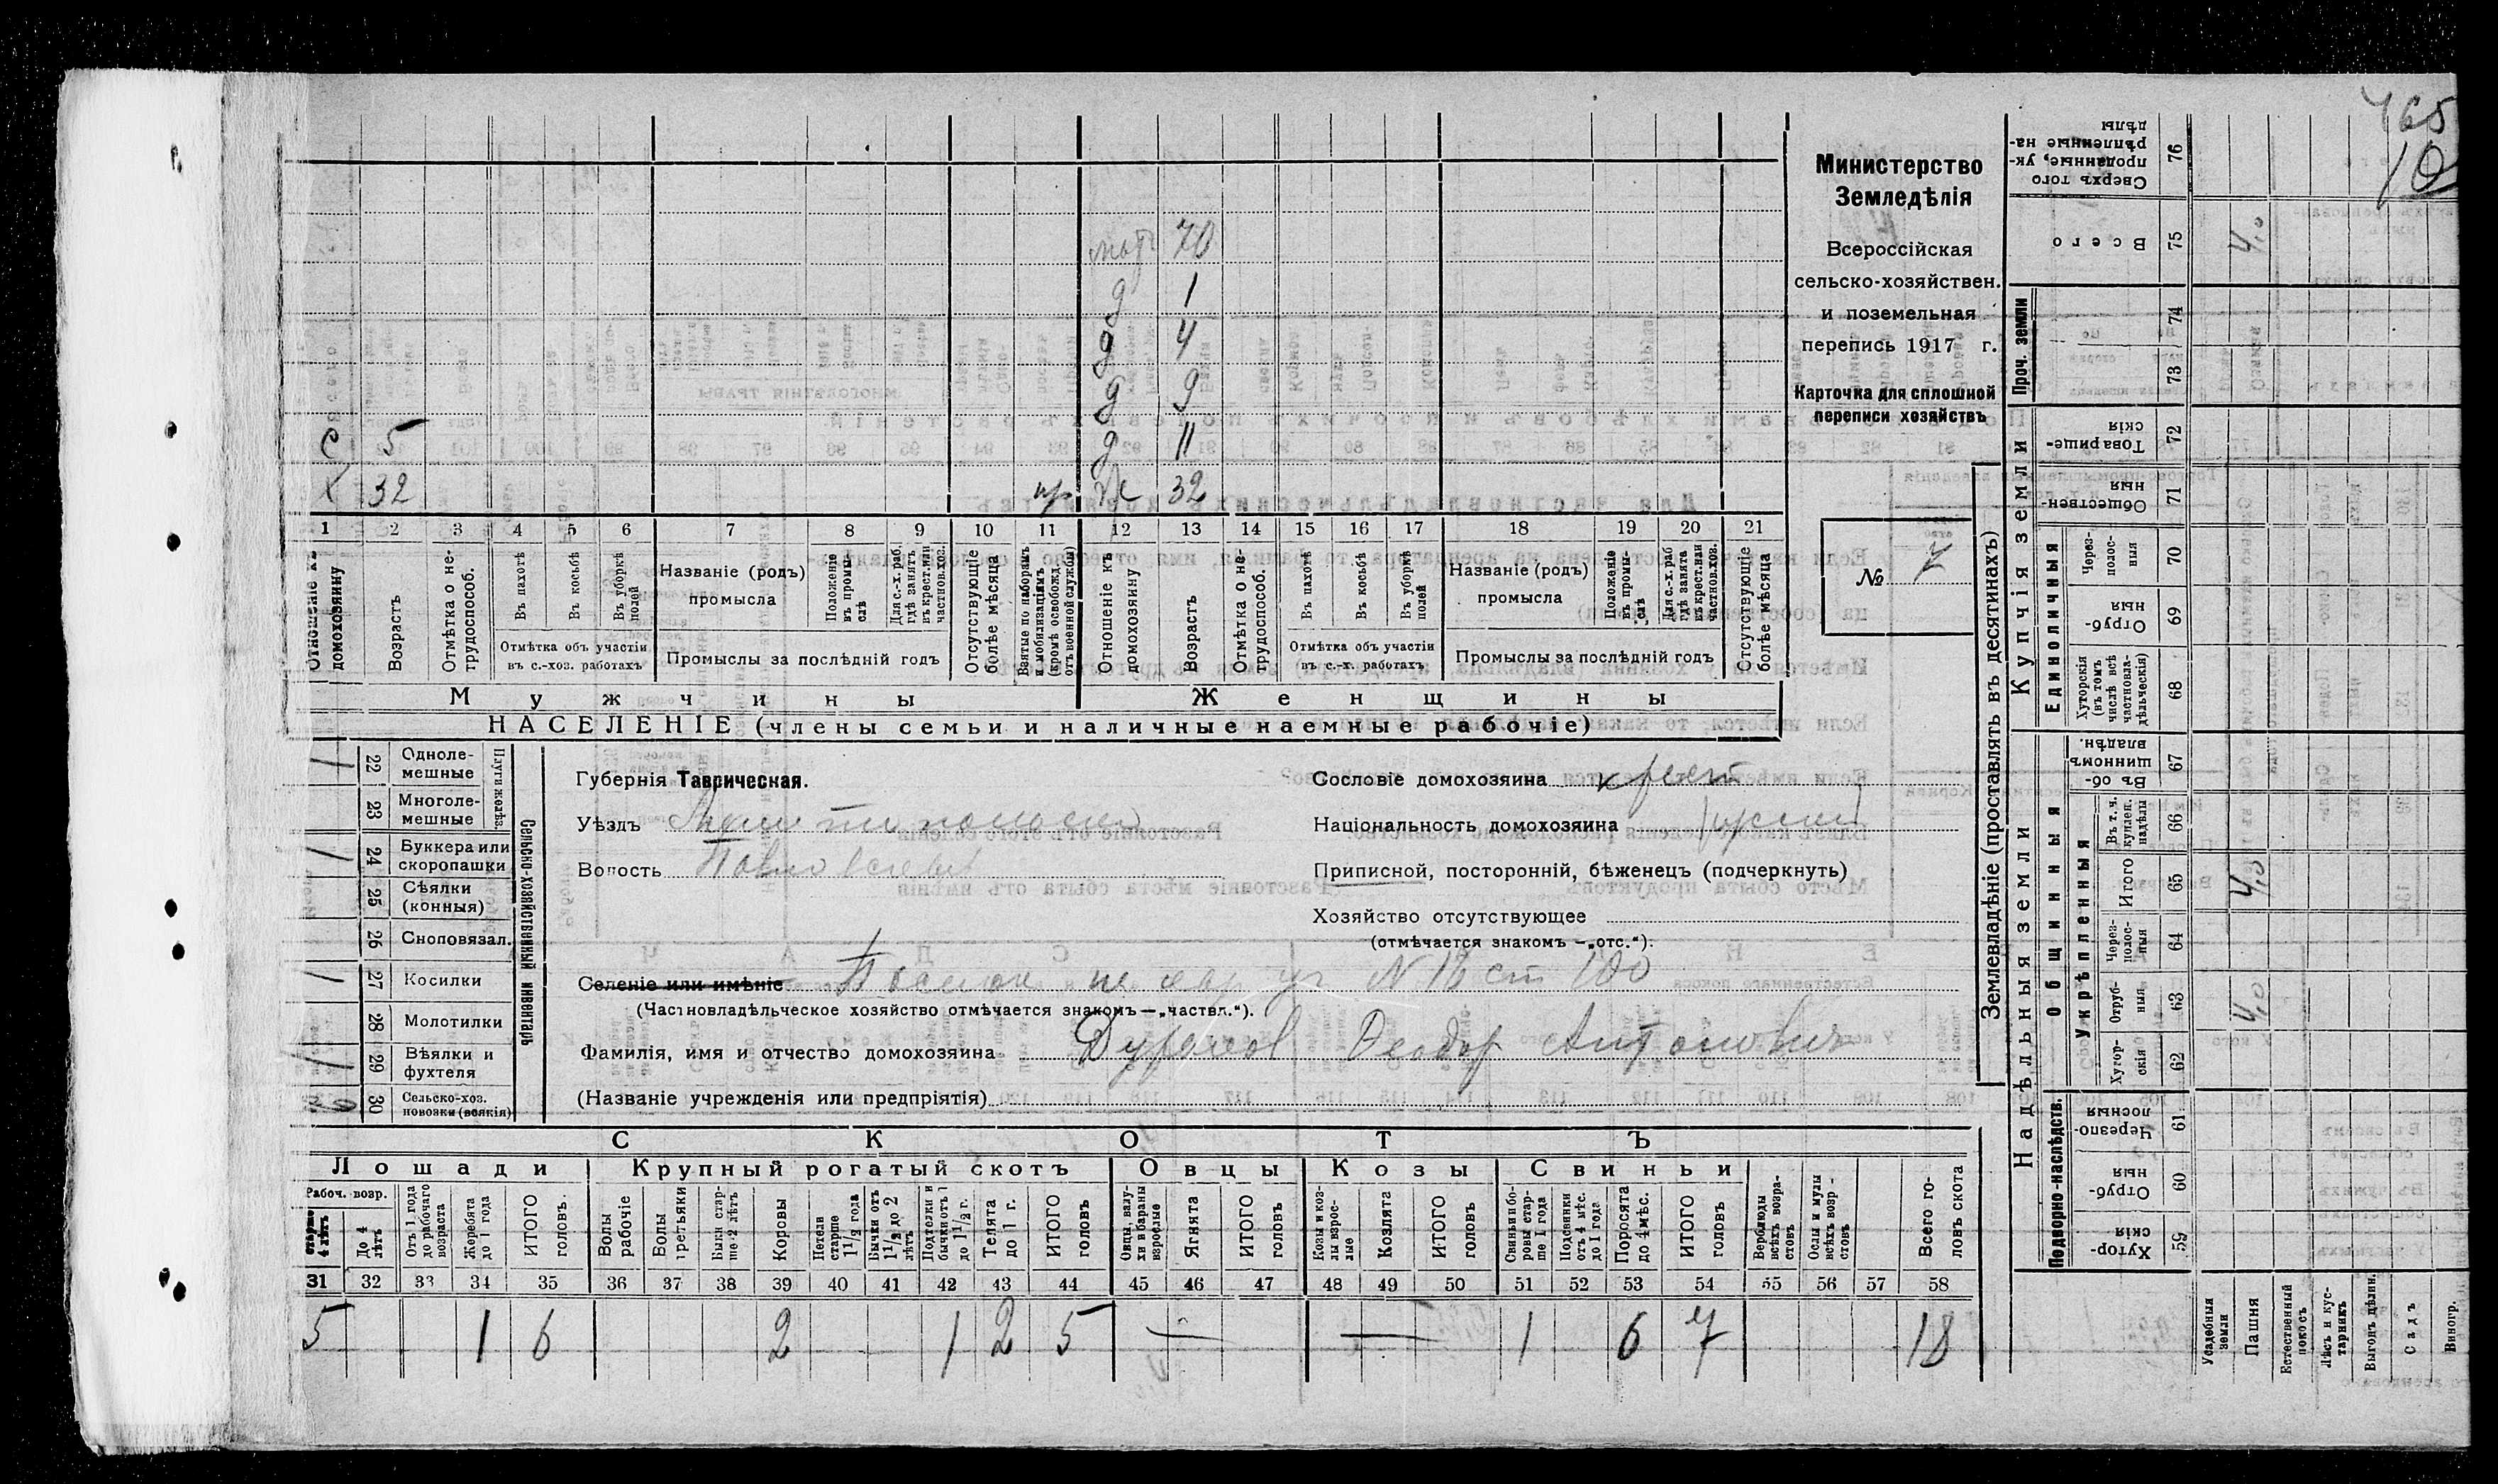 465
10
Министерство
Земледѣлія
Всероссійская
сельско-хозяйствен.
и поземельная
перепись 1917 г.
Карточка для сплошной
переписи хозяйствъ
№ 7
мат 70
д 1
д 4
д 9
с 5 д 11
Х 32 пр ж 32
1 2 3 4 5 6 7 8 9 10 11 12 13 14 15 16 17 18 19 20 21
Отношеніе къ домохозяину
Возрастъ
Отмѣтка о не-трудоспособ.
Въ пахотѣ
Въ косьбѣ
Въ уборкѣ полей
Отмѣтка объ участіи
въ с.-хоз. работахъ
Названіе (родъ)
промысла
Положеніе въ промы-слѣ
Для с.-х. раб. гдѣ занятъ въ крест. или частновл. хоз.
Промыслы за послѣдній годъ
Отсутствующіе болѣе мѣсяца
Взятые по наборамъ и мобилизаціямъ (кромѣ освобожд. отъ военной службы)
Отношеніе къ домохозяину
Возрастъ
Отмѣтка о не-трудоспособ.
Въ пахотѣ
Въ косьбѣ
Въ уборкѣ полей
Отмѣтка объ участіи
въ с.-х. работахъ
Названіе (родъ)
промысла
Положеніе въ промы-слѣ
Для с.-х. раб гдѣ занята въ крест. или частнов. хоз.
Промыслы за послѣдній годъ
Отсутствующіе болѣе мѣсяца
Мужчины Женщины
НАСЕЛЕНІЕ (члены семьи и наличные наемные рабочіе)
Сельско-хозяйственный инвентарь
Плуги желѣз.
1 22 Одноле-мешные
23 Многоле-мешные
1 24 Буккера или скоропашки
25 Сѣялки (конныя)
26 Сноповязал.
1 27 Косилки
28 Молотилки
1 29 Вѣялки и фухтеля
30 Сельско-хоз. повозки (всякія)
Губернія Таврическая.
Уѣздъ
Волость Павловская
Сословіе домохозяина крест
Національность домохозяина
Приписной, посторонній, бѣженецъ (подчеркнуть)
Хозяйство отсутствующее
(отмѣчается знакомъ —„отс.“).
Селеніе или имѣніе № 16 ст 100
(Частновладѣльческое хозяйство отмѣчается знакомъ—„частвл.“).
Фамилія, имя и отчество домохозяина Феодор Антонович
(Названіе учрежденія или предпріятія)
СКОТЪ
Лошади Крупный рогатый скотъ Овцы Козы Свиньи
Рабоч. возр.
старше 4 лѣтъ
До 4 лѣтъ
Отъ 1 года до рабочаго возраста
Жеребята до 1 года
ИТОГО головъ.
Волы рабочіе
Волы третьяки
Быки стар-ше 2 лѣтъ
Коровы
Нетели старше 1½ года
Бычки отъ 1½ до 2 лѣтъ
Подтелки и бычки отъ 1 до 1½ г.
Телята до 1 г.
ИТОГО головъ
Овцы, валу-хи и бараны взрослые
Ягнята
ИТОГО головъ
Козы и коз-лы взрос-лые
Козлята
ИТОГО головъ
Свиньи и бо-ровы стар-ше 1 года
Подсвинки отъ 4 мѣс. до 1 года
Поросята до 4 мѣс.
ИТОГО головъ
Верблюды всѣхъ возра-стовъ
Ослы и мулы всѣхъ возр-стовъ
Всего го-ловъ скота
31 32 33 34 35 36 37 38 39 40 41 42 43 44 45 46 47 48 49 50 51 52 53 54 55 56 57 58
5 1 6 2 1 2 5 — — 1 6 7 18
Землевладѣніе (проставлять въ десятинахъ)
Надѣльныя земли
Купчія земли
Проч. земли
Подворно-наслѣдств.
Общинныя
Укрѣпленныя
Единоличныя
Хутор-скія 59
Отруб-ныя 60
Черезпо-лосныя 61
Хутор-скія 62
Отруб-ныя 63 4,0
Черезполос-ныя 64
Итого 65 4,0
Въ т. ч. куплен. надѣлы 66
Въ об-щинномъ владѣн. 67
Хуторскія (въ томъ числѣ всѣ частновла-дѣльческія) 68
Отруб-ныя 69
Через-полос-ныя 70
Обществен-ныя 71
Товарище-скія 72
73
74
Всего 75 4,0
Сверхъ того проданные, ук-рѣпленные на-дѣлы 76
Усадебныя земли
Пашня
Естественный покосъ
Лѣсъ и кус-тарникъ
Выгодъ дѣлин.
Садъ
Виногр.